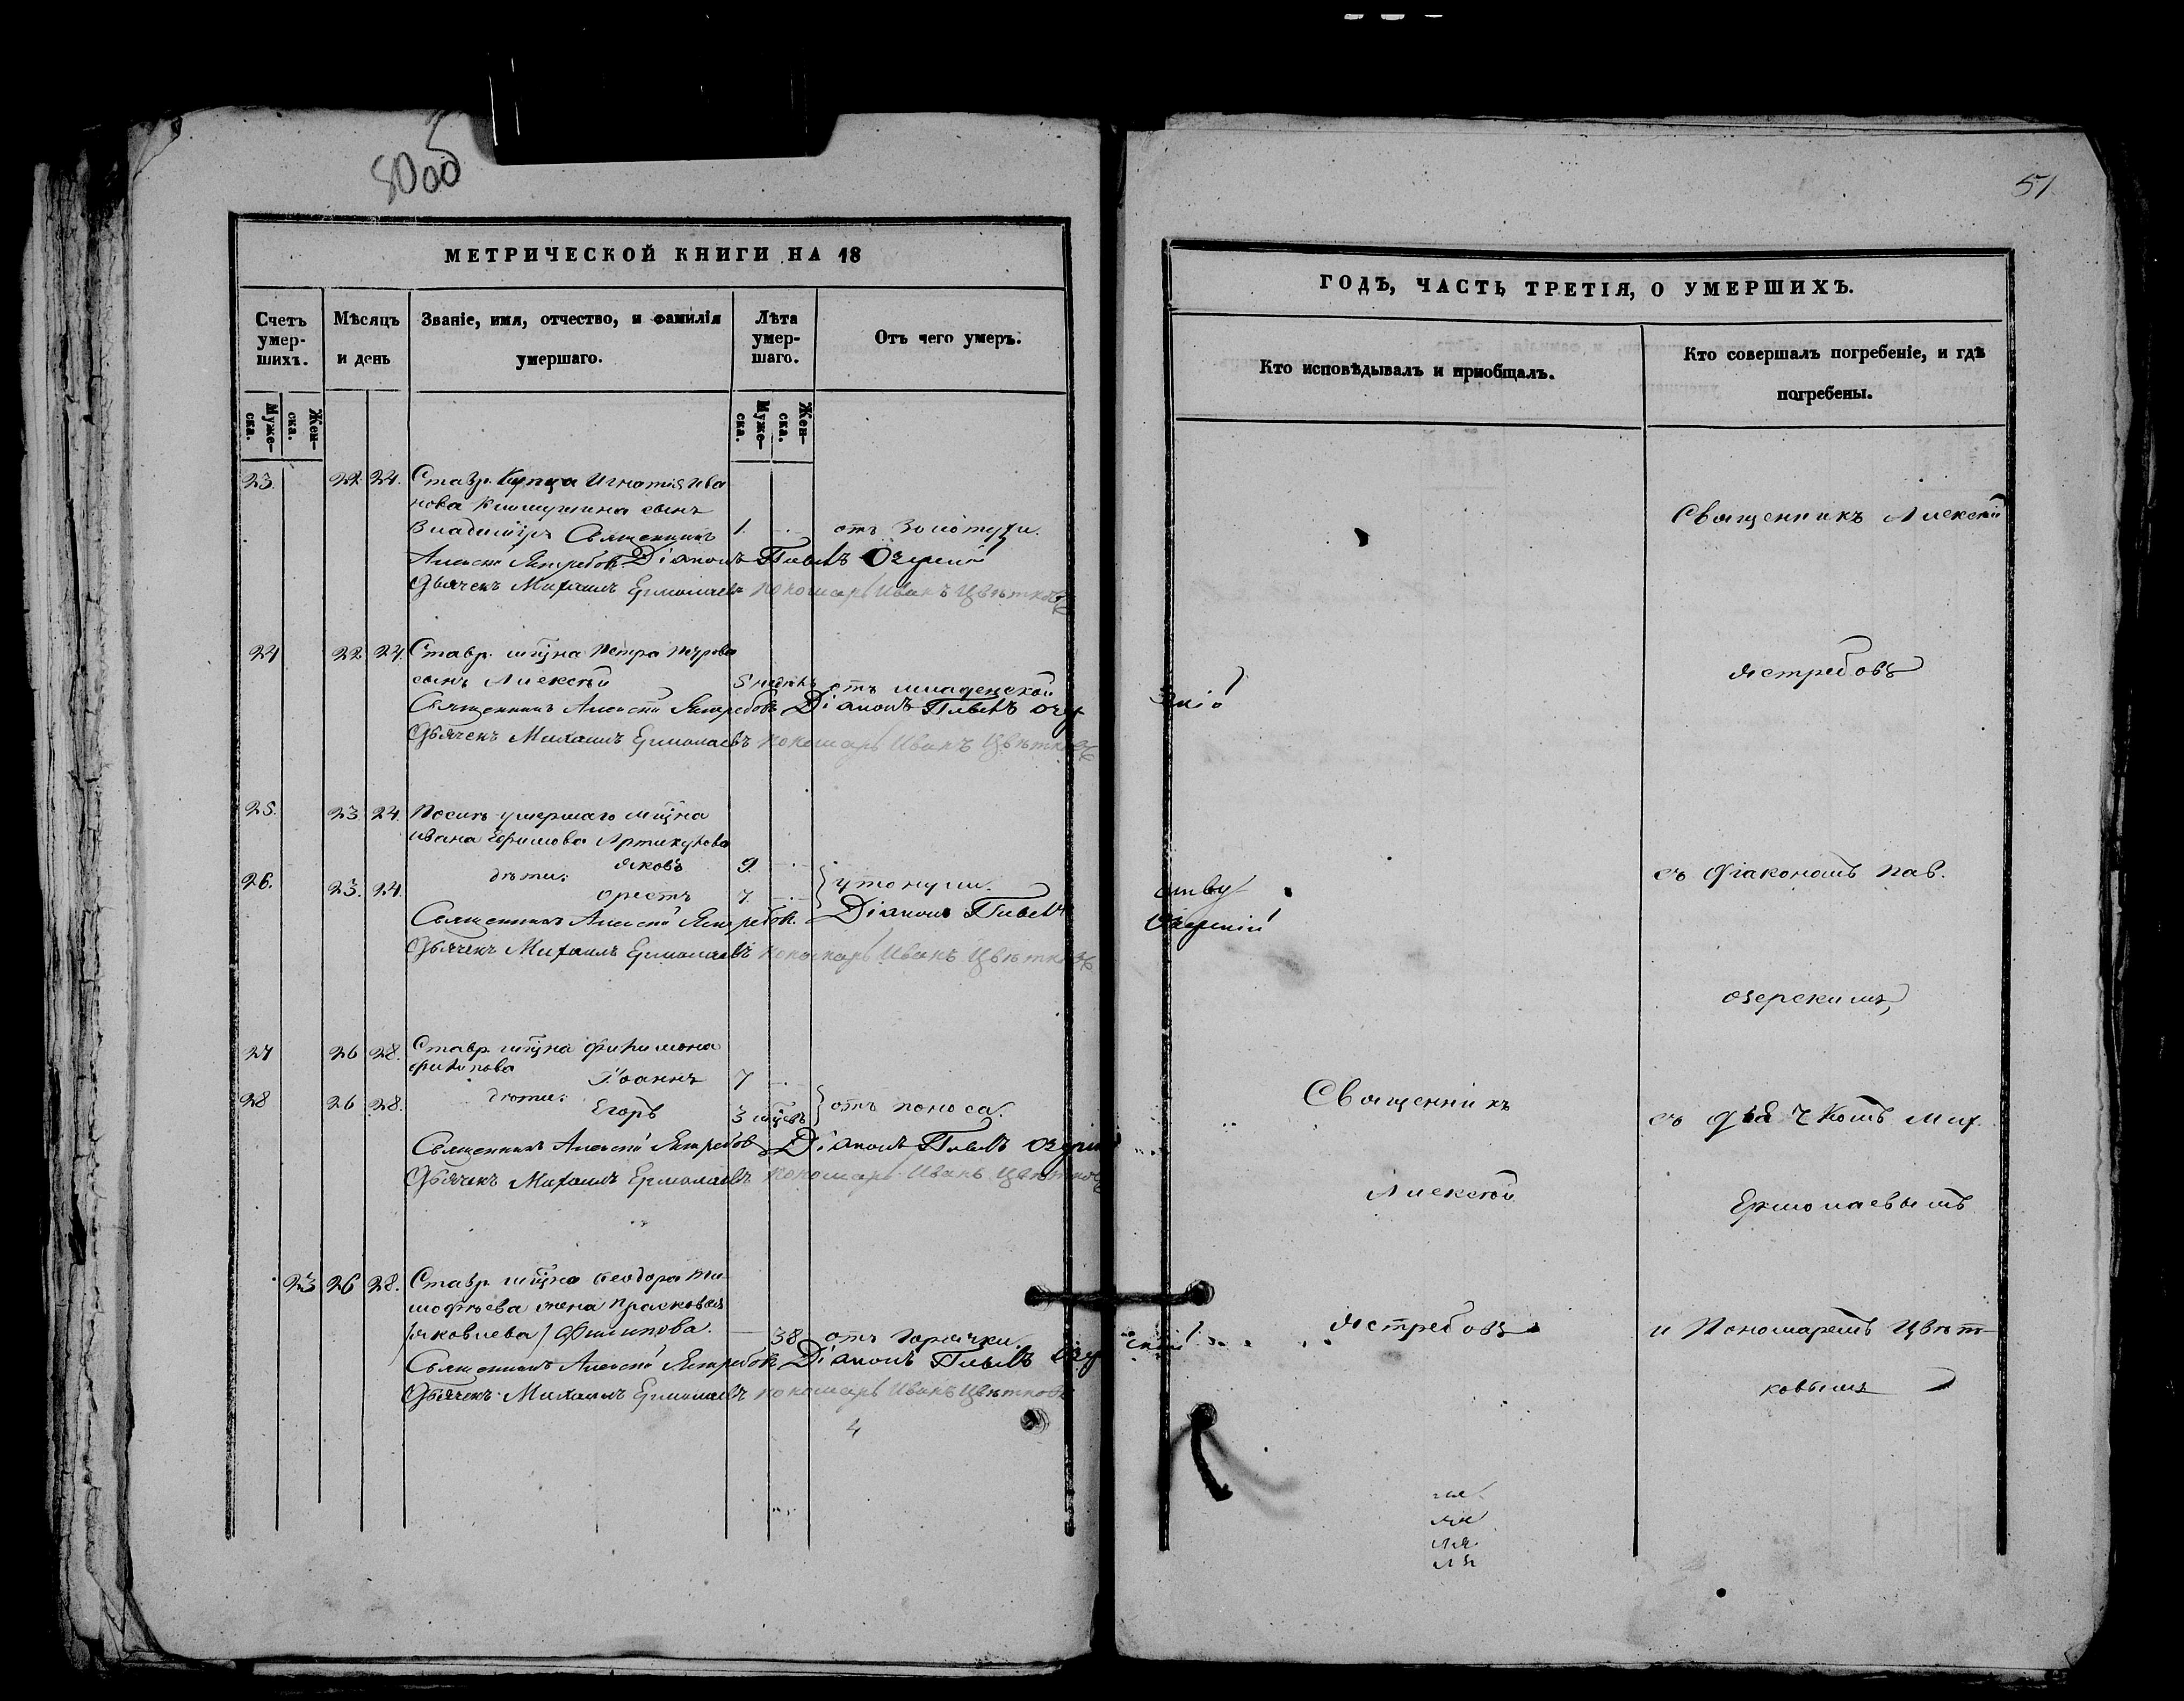 80 об
МЕТРИЧЕСКОЙ КНИГИ НА 18
Счетъ умер-шихъ.
Мѣсяцъ и день
Званіе, имя, отчество, и фамилія умершаго.
Лѣта умер-шаго.
Отъ чего умеръ.
Муже-ска.
Жен-ска.
Муже-ска.
Жен-ска.
23. 22. 24. Ставр. Купца Игнатія Ива
нова сынъ
Владиміръ Священникъ 1. отъ Золотухи.
Алексѣй Ястребовъ. Діаконъ Павелъ Озерскій
Дьячекъ Михаилъ Ермолаевъ Пономарь Иванъ Цвѣтковъ
24 22 24. Ставр. мѣщна Петра Петрова
сынъ Алексѣй 5 недѣль отъ младенской
Священникъ Алексѣй Ястребовъ Діаконъ Павелъ Озер
Дьячекъ Михаилъ Ермолаевъ Пономарь Иванъ Цвѣтковъ
25. 23. 24. Послѣ умершаго мѣщна
Ивана Ефимова
Яковъ 9.
26. 23. 24. дѣти: Орестъ 7. утонули.
Священникъ Алексѣй Ястребовъ. Діаконъ Павелъ
Дьячекъ Михаилъ Ермолаевъ Пономарь Иванъ Цвѣтковъ
27 26 28. Ставр. мѣщна Филимона
Филипова Іоаннъ 7
28 26 28. дѣти: Егоръ 3 мѣсцъ отъ поноса.
Священникъ Алексѣй Ястребовъ Діаконъ Павелъ Озерскі
Дьячекъ Михаилъ Ермолаевъ Пономарь Иванъ Цвѣтковъ
23 26 28. Ставр. мѣщна Феодора Ти-
мофѣева жена Прасковья
Яковлева Филипова. 38 отъ горячки.
Священникъ Алексѣй Ястребовъ Діаконъ Павелъ Озер
Дьячекъ Михаилъ Ермолаевъ Пономарь Иванъ Цвѣтковъ
4
51
ГОДЪ, ЧАСТЬ ТРЕТІЯ, О УМЕРШИХЪ.
Кто исповѣдывалъ и пріобщалъ.
Кто совершалъ погребеніе, и гдѣ погребены.
Священникъ Алексѣй
Ястребовъ
съ Діакономъ Пав.
Озерскій
Озерскимъ,
Священникъ
съ Дьячкомъ Мих.
Алексѣй
Ермолаевымъ
Ястребовъ
и Пономаремъ Цвѣт-
ковымъ